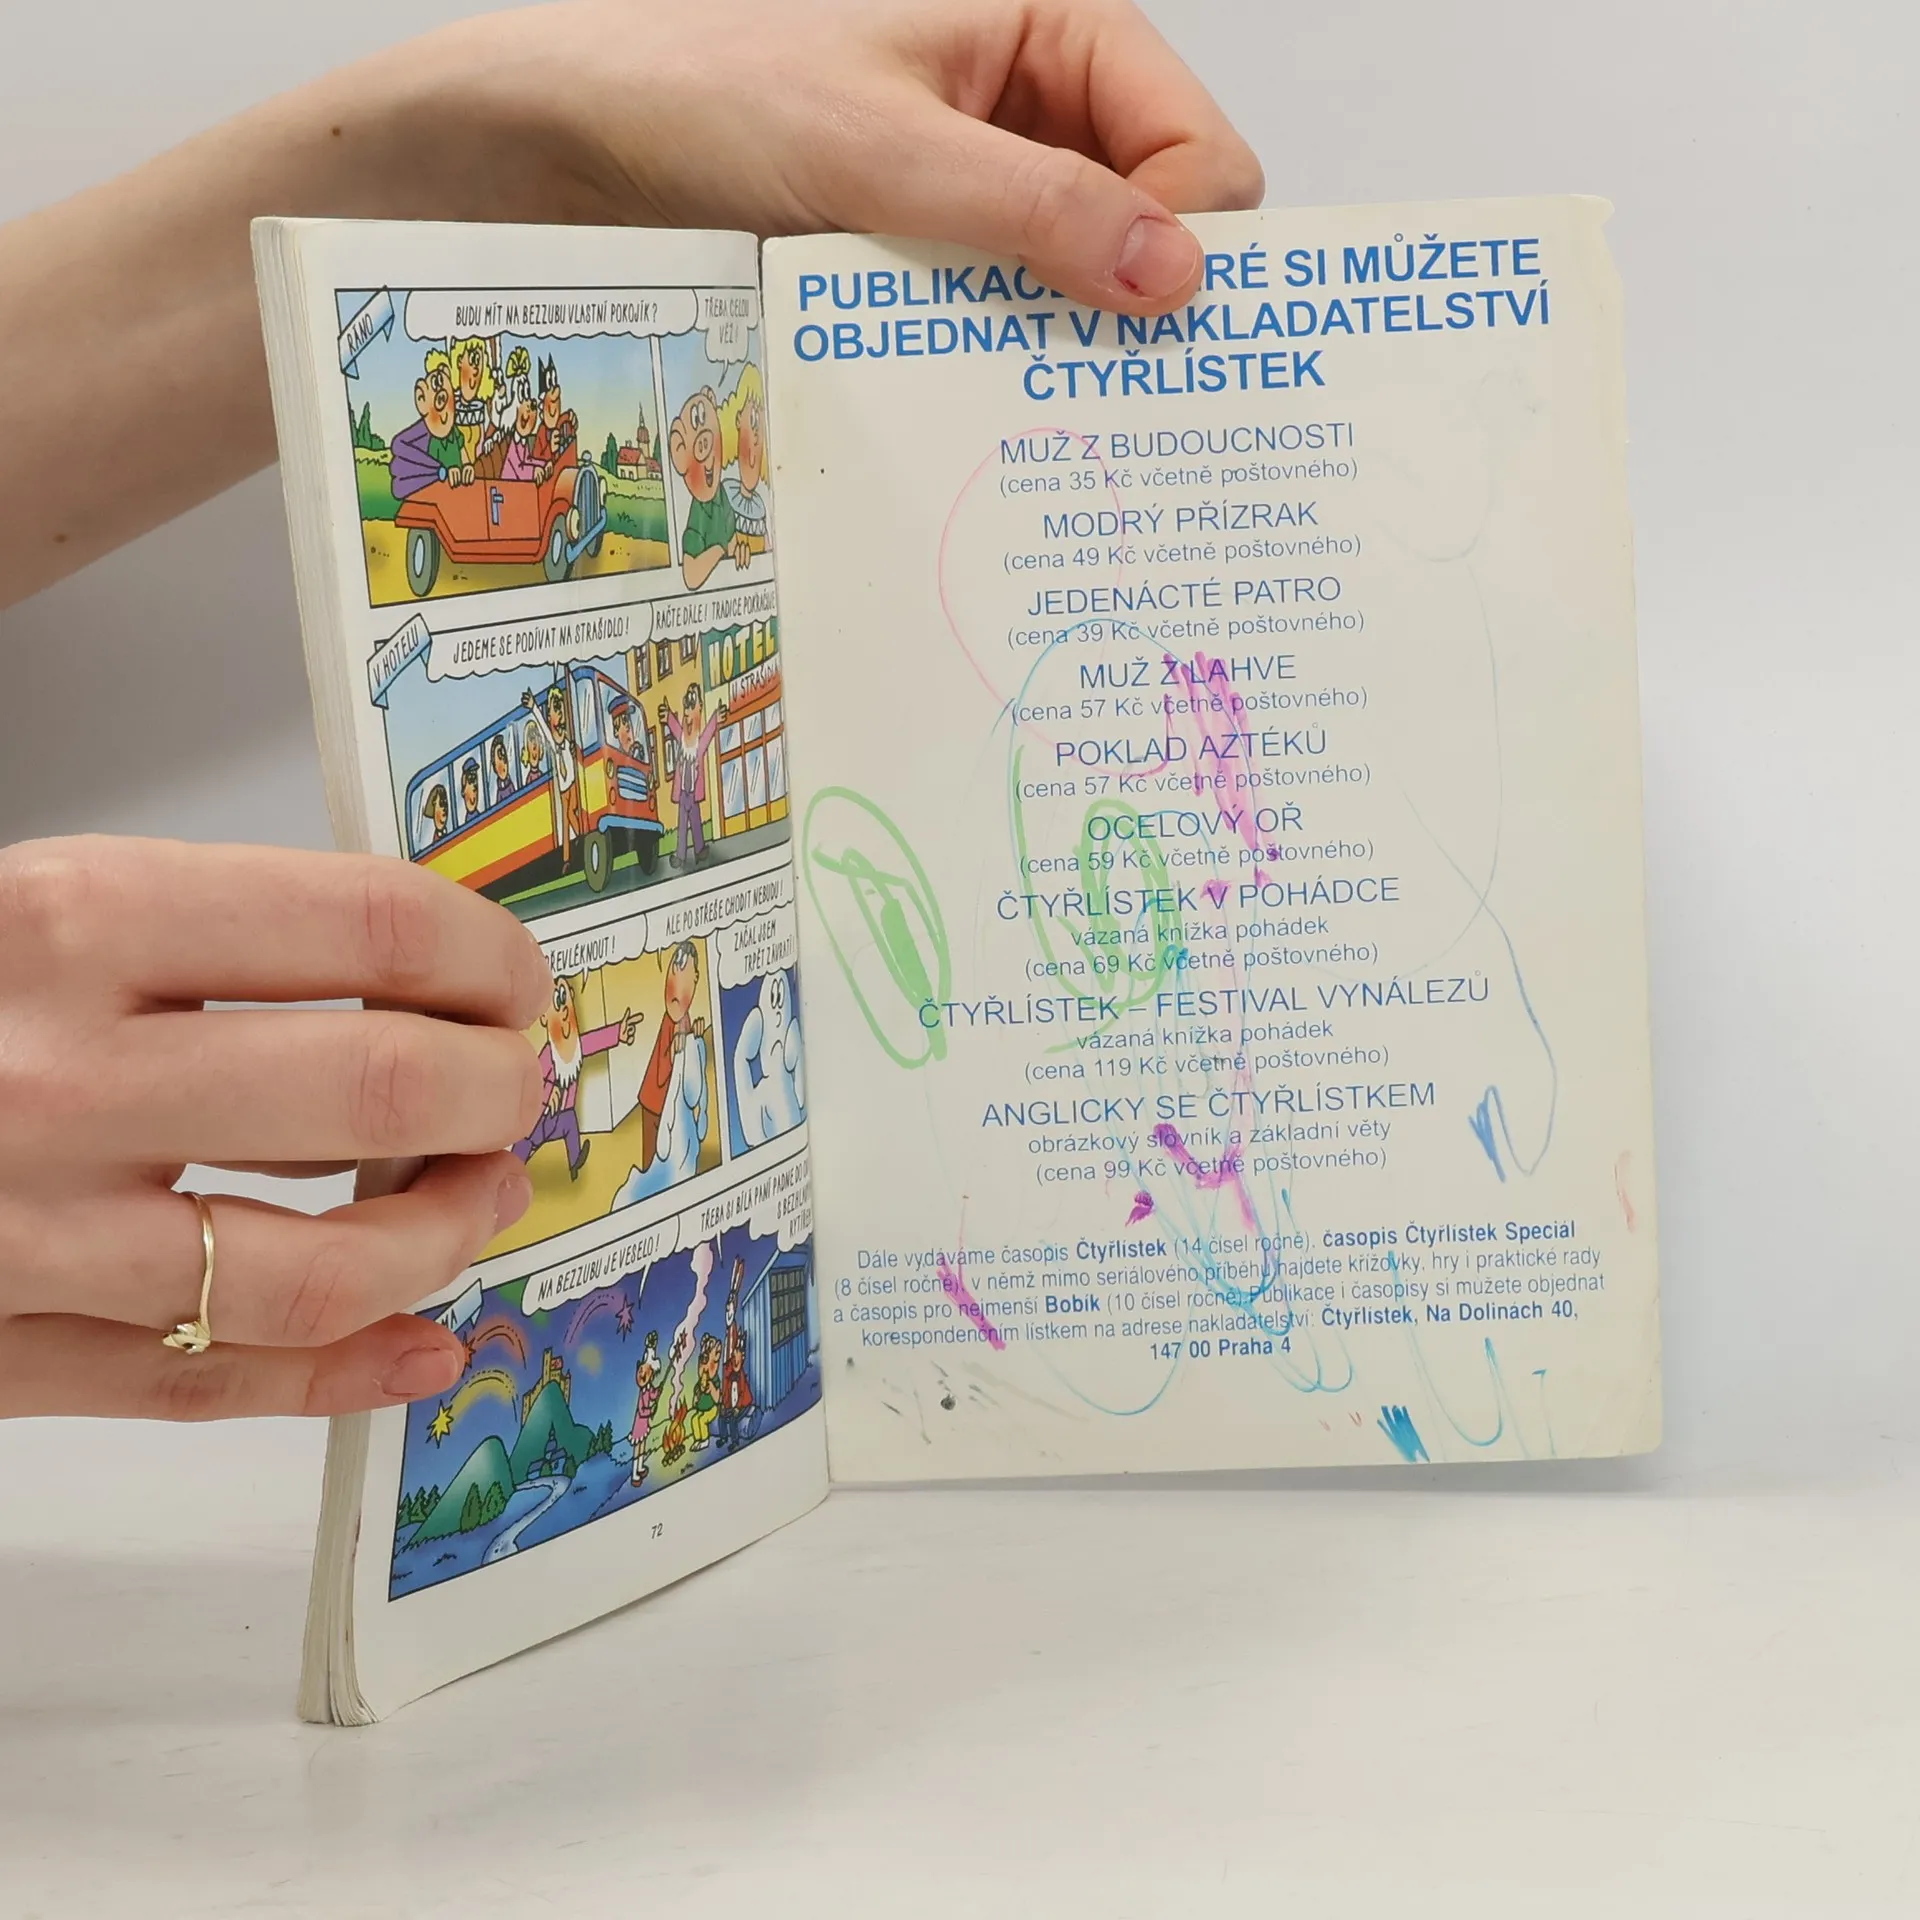 RÁNO
BUDU MÍT NA BEZZUBU VLASTNÍ POKOJÍK?
TŘEBA CELOU
VĚŽ!
V HOTELU
JEDEME SE PODÍVAT NA STRAŠIDLO!
RAČTE DÁLE! TRADICE POKRAČUJE
HOTEL
U STRAŠIDLA
PŘEVLÉKNOUT!
ALE PO STŘEŠE CHODIT NEBUDU!
ZAČAL JSEM
TRPĚT ZÁVRATÍ
NA BEZZUBU JE VESELO!
TŘEBA SI BÍLÁ PANÍ PADNE DO
S BEZHLAVÝM
RYTÍŘEM
72
SI MŮŽETE
OBJEDNAT V NAKLADATELSTVÍ
ČTYŘLÍSTEK
MUŽ Z BUDOUCNOSTI
(cena 35 Kč včetně poštovného)
MODRÝ PŘÍZRAK
(cena 49 Kč včetně poštovného)
JEDENÁCTÉ PATRO
(cena 39 Kč včetně poštovného)
MUŽ Z LAHVE
(cena 57 Kč včetně poštovného)
POKLAD AZTÉKŮ
(cena 57 Kč včetně poštovného)
OCELOVÝ OŘ
(cena 59 Kč včetně poštovného)
ČTYŘLÍSTEK V POHÁDCE
vázaná knížka pohádek
(cena 69 Kč včetně poštovného)
ČTYŘLÍSTEK – FESTIVAL VYNÁLEZŮ
vázaná knížka pohádek
(cena 119 Kč včetně poštovného)
ANGLICKY SE ČTYŘLÍSTKEM
obrázkový slovník a základní věty
(cena 99 Kč včetně poštovného)
Dále vydáváme časopis Čtyřlístek (14 čísel ročně), časopis Čtyřlístek Speciál
(8 čísel ročně), v němž mimo seriálového příběhu najdete křížovky, hry i praktické rady
a časopis pro nejmenší Bobík (10 čísel ročně). Publikace i časopisy si můžete objednat
korespondenčním lístkem na adrese nakladatelství: Čtyřlístek, Na Dolinách 40,
147 00 Praha 4